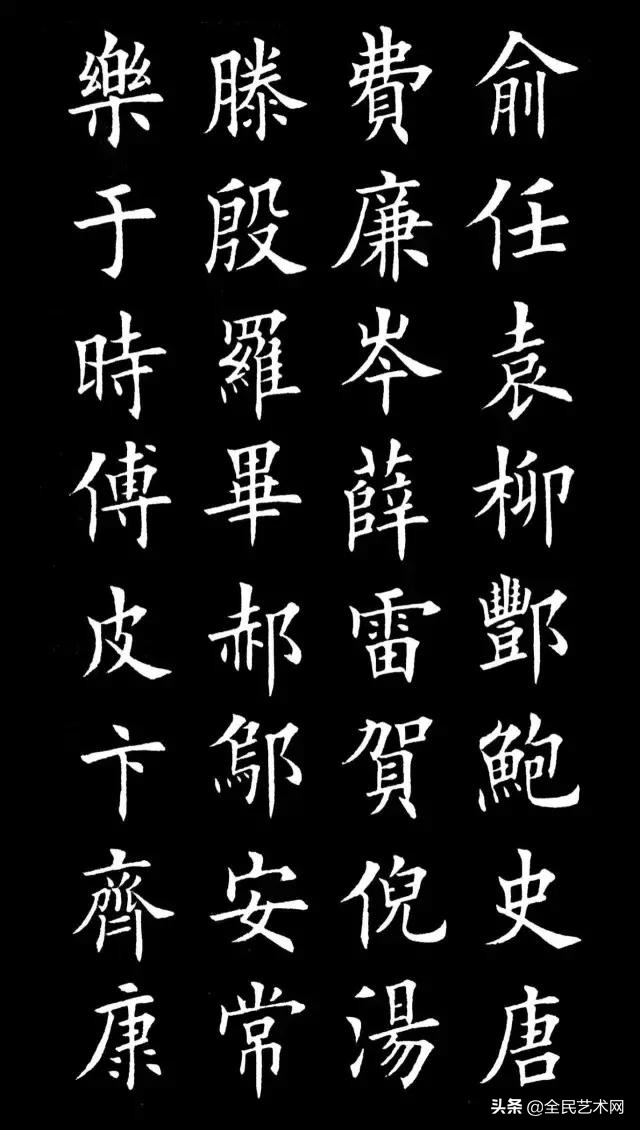 俞任袁柳酆鮑史唐
費廉岑薛雷賀倪湯
滕殷羅畢郝鄔安常
樂于時傅皮卞齊康
头条 @全民艺术网